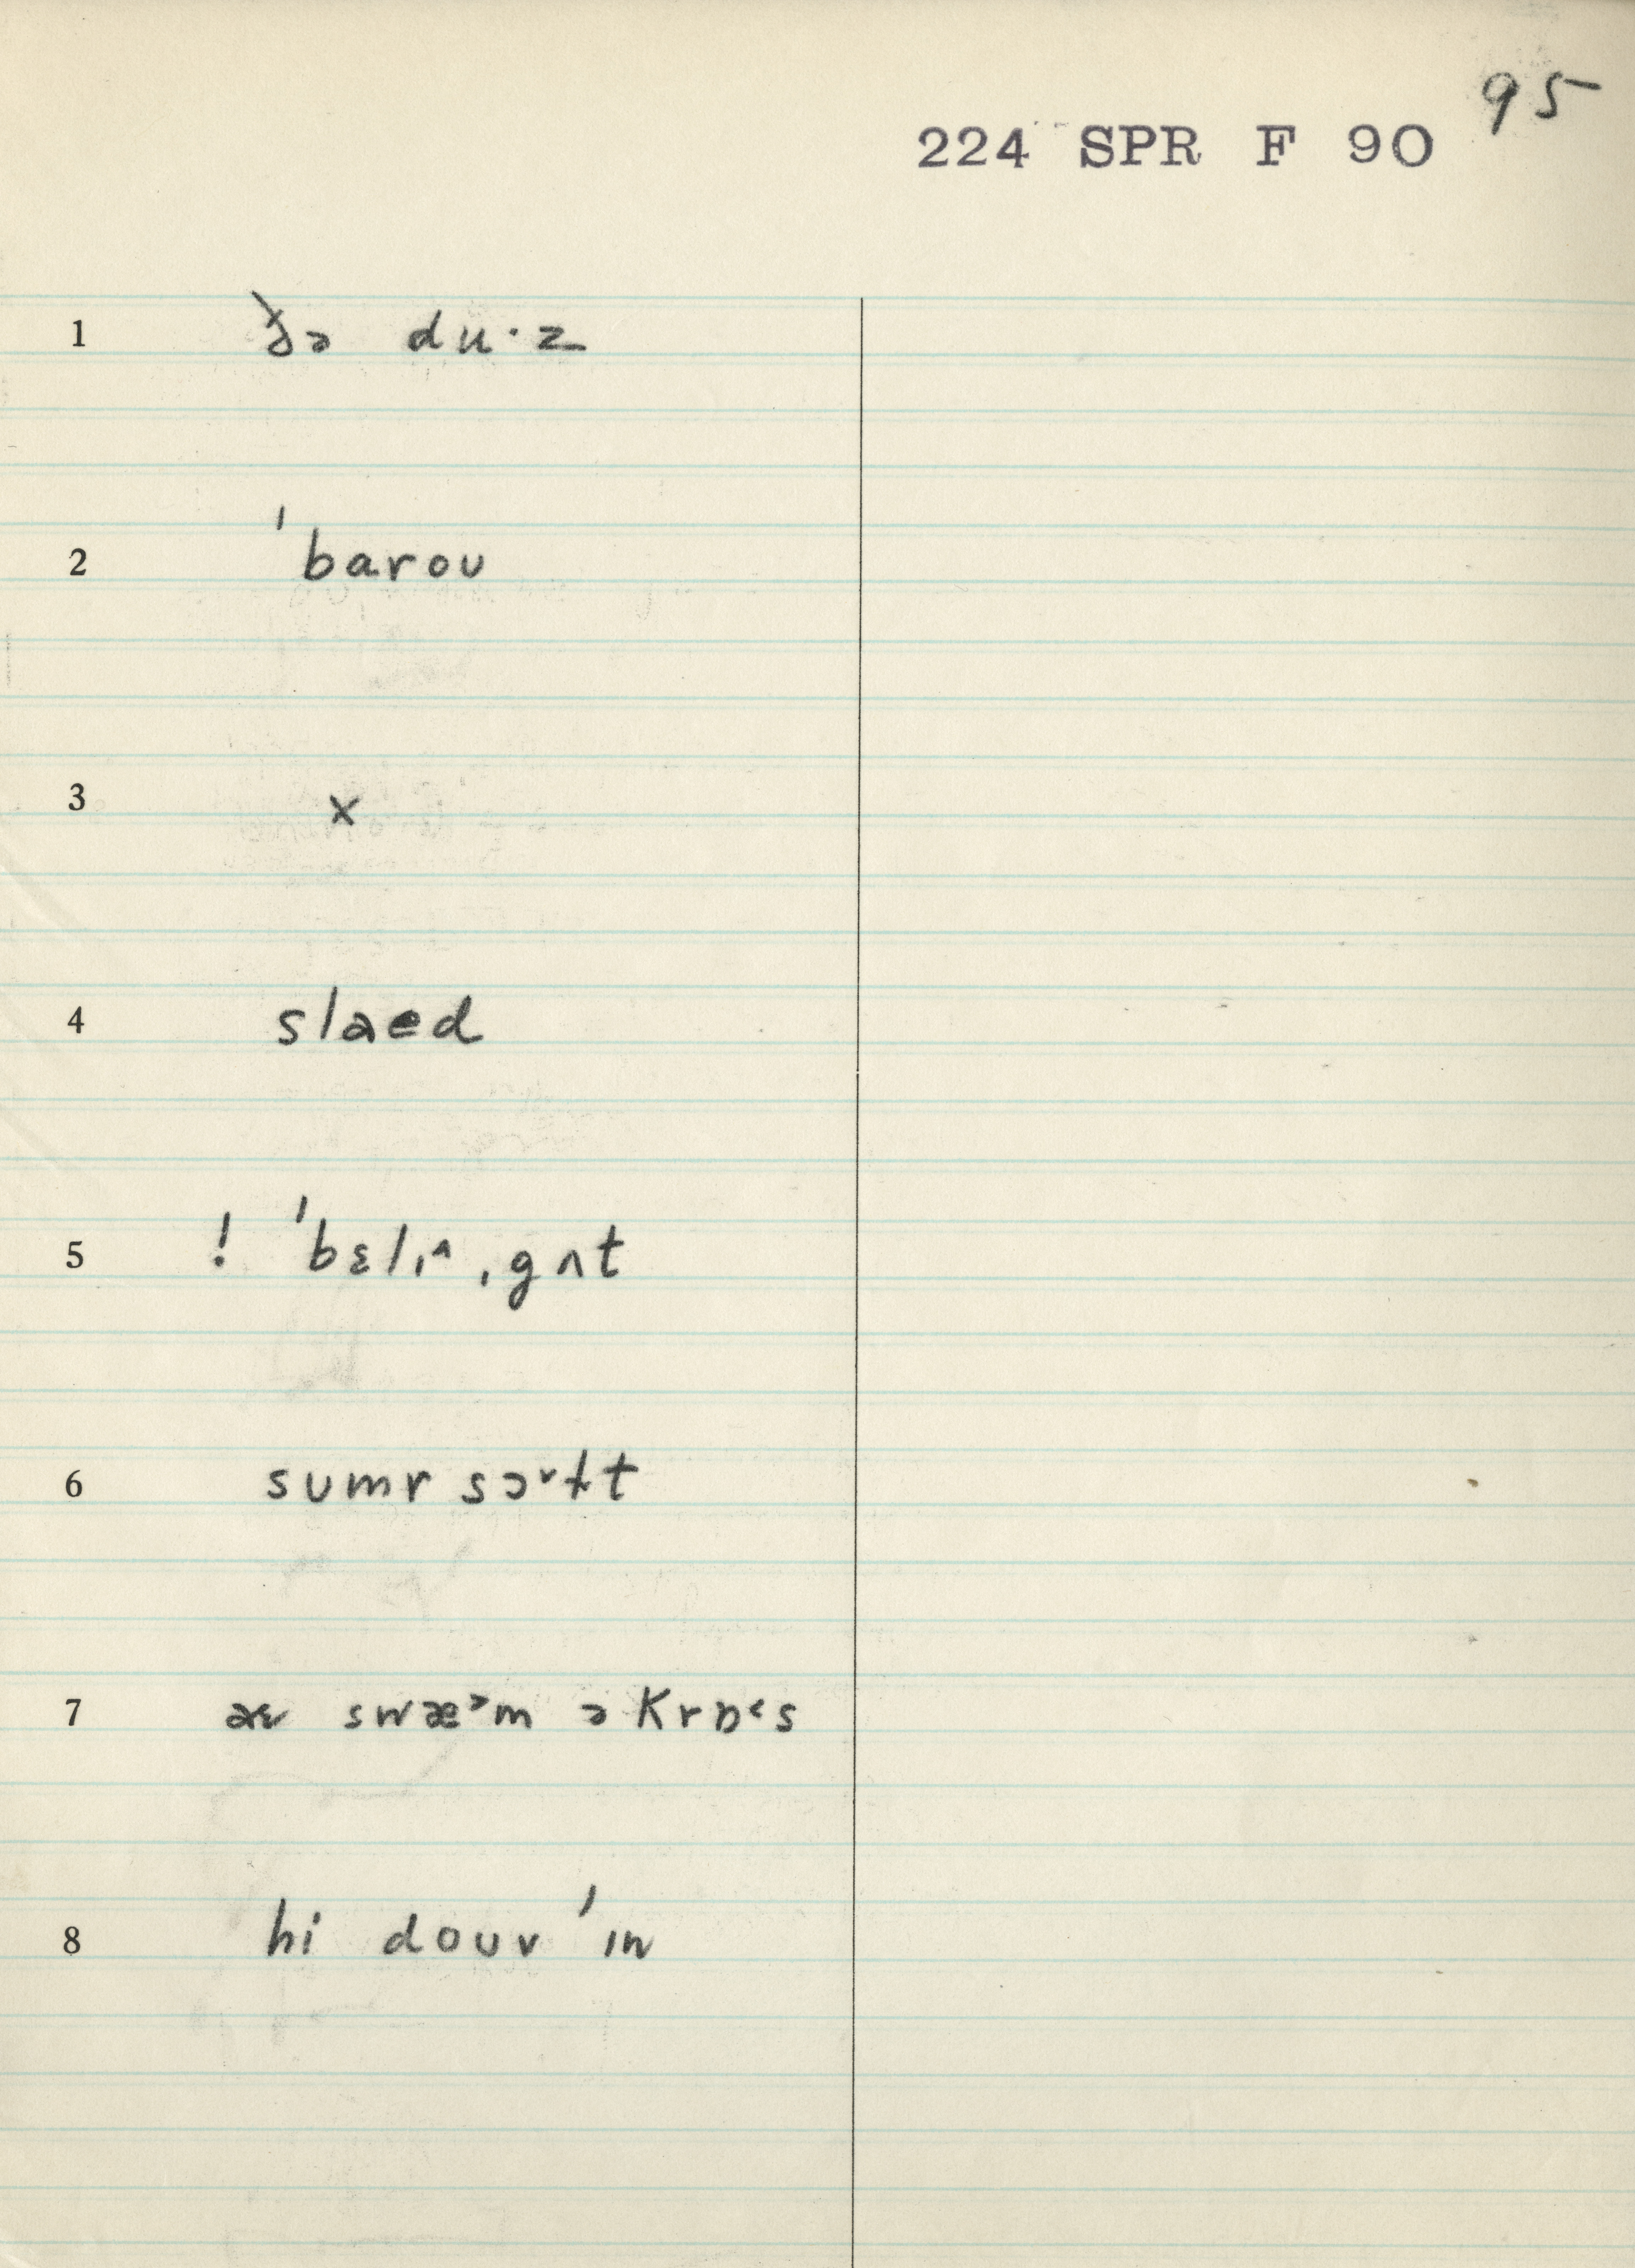 95
224 SPR F 90
1 ðə du·z
2 ˈbarou
3 x
4 slaed
5 ! ˈbɛlɪ^ ˌgʌt
6 sumr sɔ˅ɫt
7 aɛ swæ˃m ə krɒ˂s
8 hi douv ˈɪn